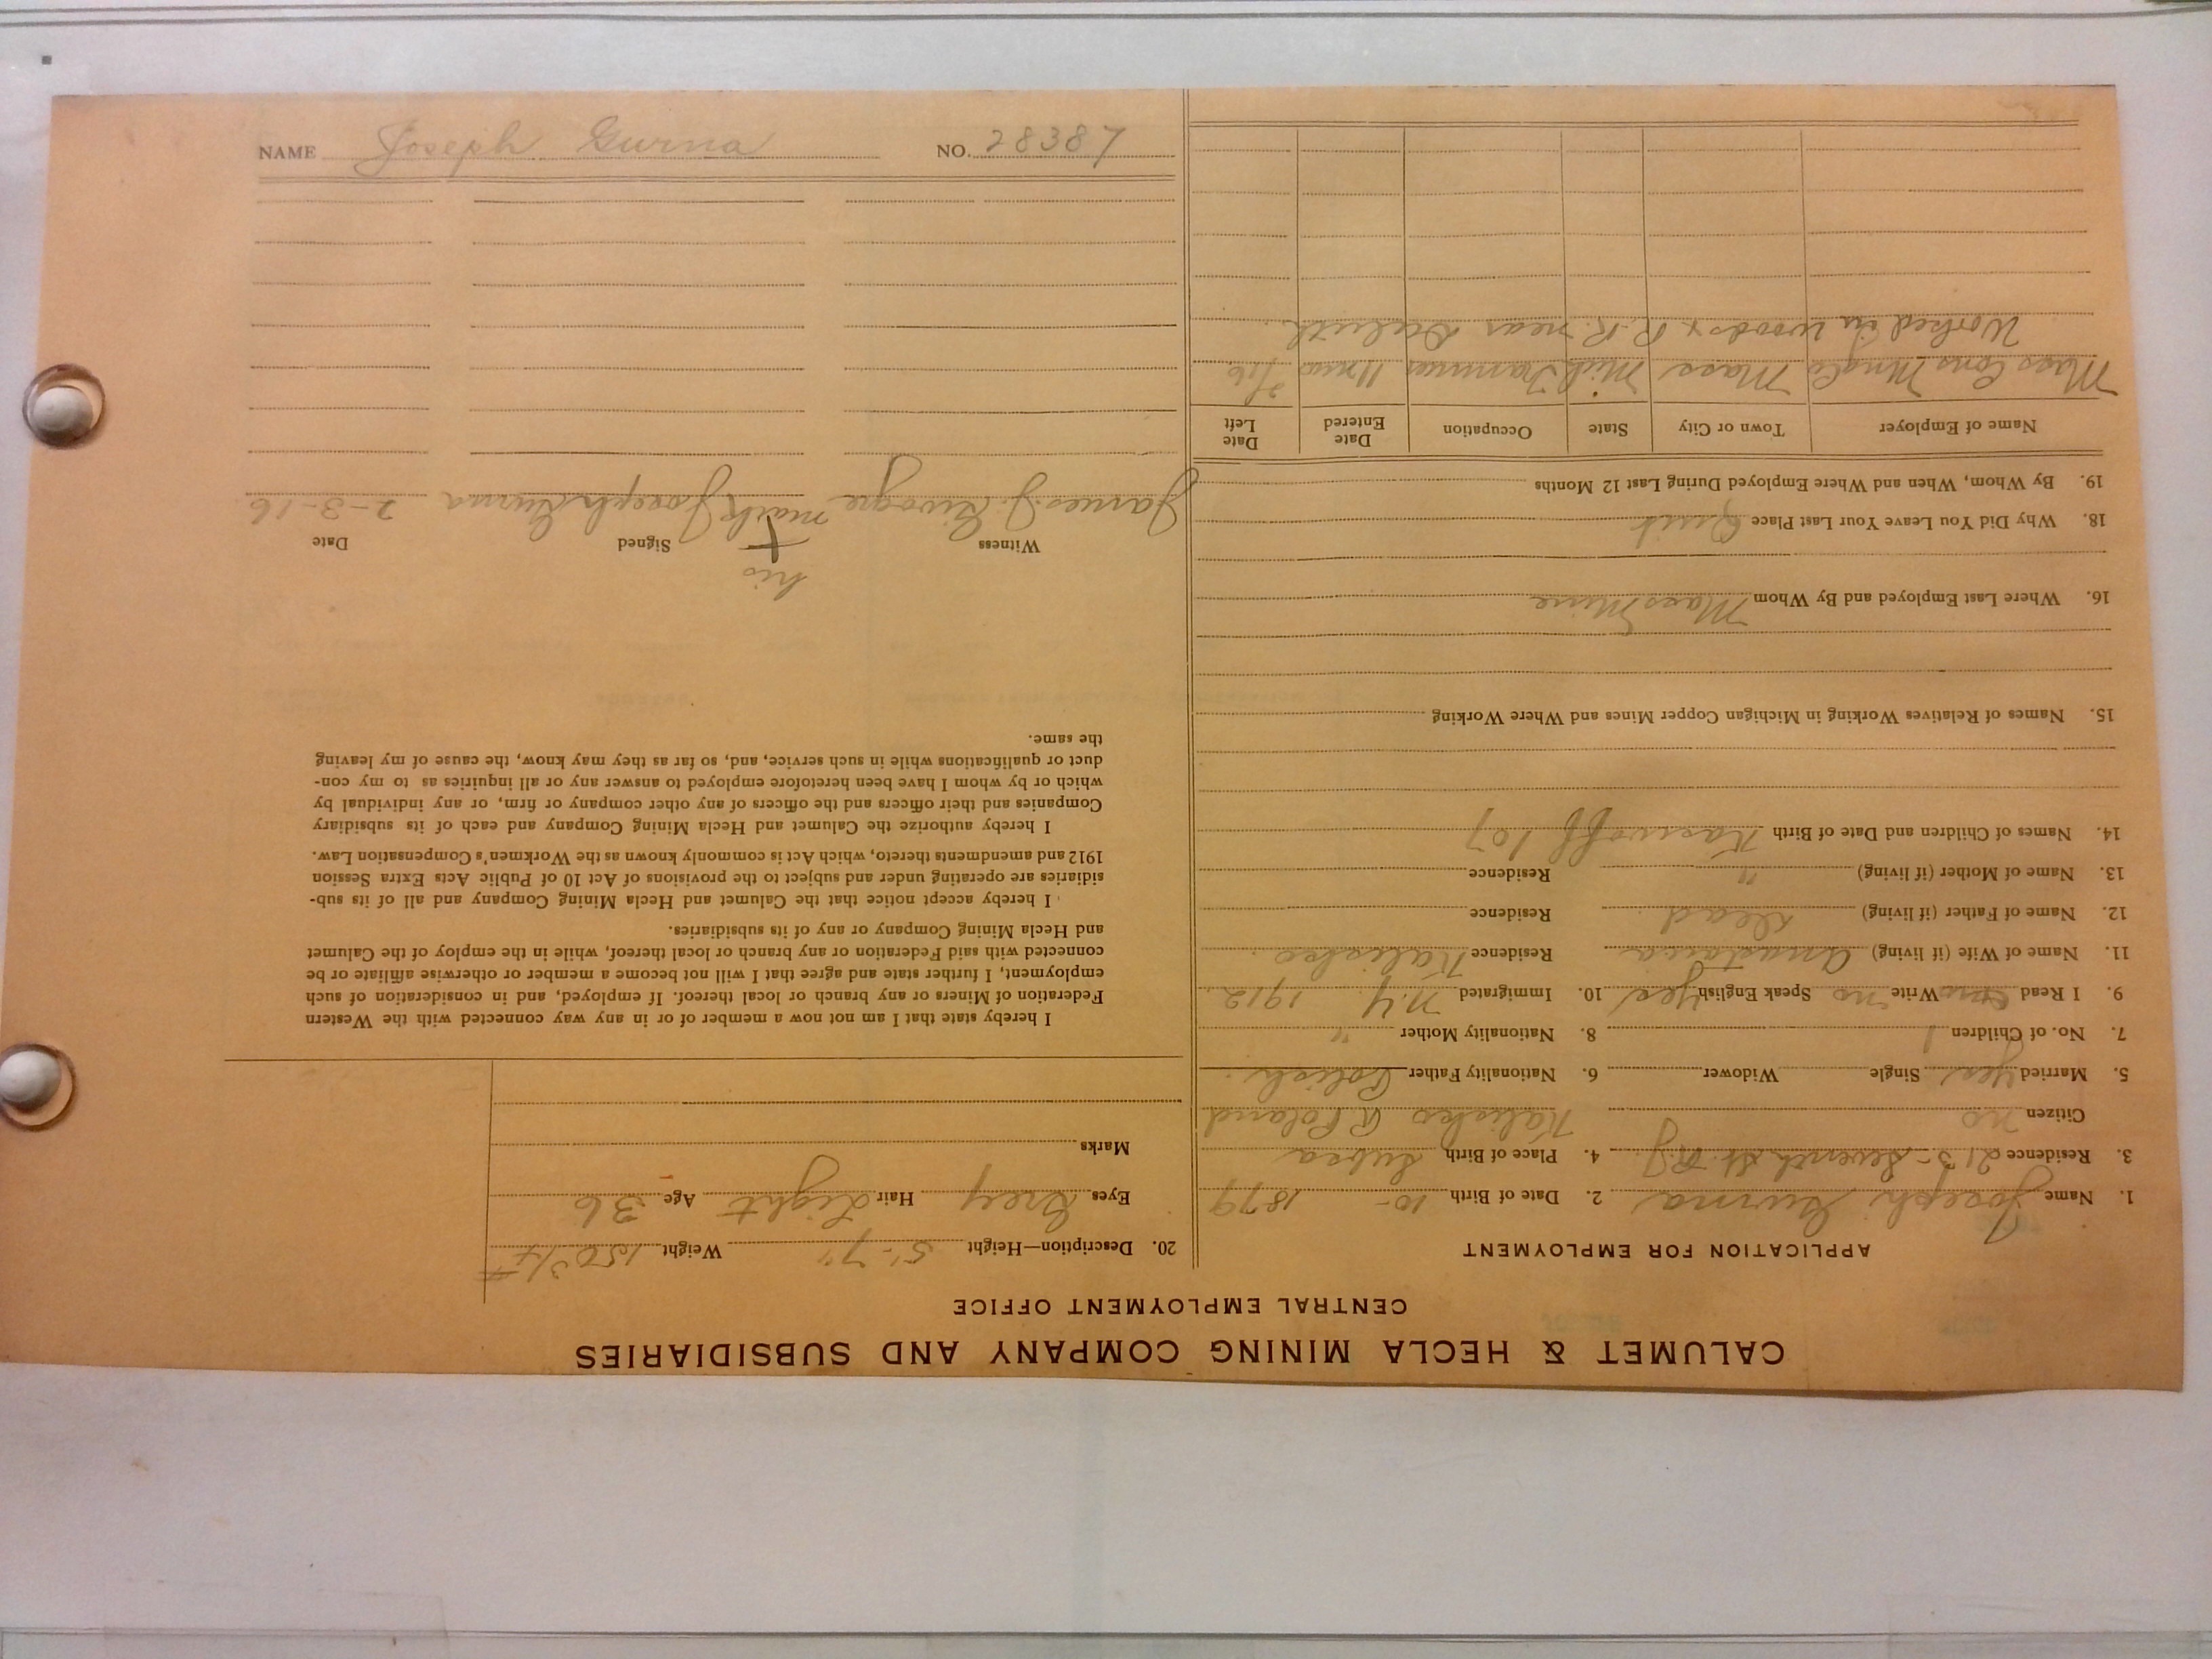 NAME Joseph Gurna NO. 28387
CALUMET & HECLA MINING COMPANY AND SUBSIDIARIES
CENTRAL EMPLOYMENT OFFICE
APPLICATION FOR EMPLOYMENT
1. Name Joseph Gurna 2. Date of Birth 10- 1879
3. Residence 213- Seventh St. 4. Place of Birth
Citizen no Kalisko R. Poland
5. Married yes Single Widower 6. Nationality Father Polish
7. No. of Children 1 8. Nationality Mother "
9. I Read Write no Speak English yes 10. Immigrated N.Y. 1912
11. Name of Wife (if living) Anastasia Residence Kalisko
12. Name of Father (if living) dead Residence
13. Name of Mother (if living) " Residence
14. Names of Children and Date of Birth
15. Names of Relatives Working in Michigan Copper Mines and Where Working
16. Where Last Employed and By Whom Mass Mine
18. Why Did You Leave Your Last Place Quit
19. By Whom, When and Where Employed During Last 12 Months
Name of Employer Town or City State Occupation Date Entered Date Left
Mass Cons Mng Co Mass Mich Trammer
Worked in woods & R.R. near Duluth
20. Description—Height 5'-7" Weight 150 3/4 #
Eyes Grey Hair Light Age 36
Marks
I hereby state that I am not now a member of or in any way connected with the Western
Federation of Miners or any branch or local thereof. If employed, and in consideration of such
employment, I further state and agree that I will not become a member or otherwise affiliate or be
connected with said Federation or any branch or local thereof, while in the employ of the Calumet
and Hecla Mining Company or any of its subsidiaries.
I hereby accept notice that the Calumet and Hecla Mining Company and all of its sub-
sidiaries are operating under and subject to the provisions of Act 10 of Public Acts Extra Session
1912 and amendments thereto, which Act is commonly known as the Workmen's Compensation Law.
I hereby authorize the Calumet and Hecla Mining Company and each of its subsidiary
Companies and their officers and the officers of any other company or firm, or any individual by
which or by whom I have been heretofore employed to answer any or all inquiries as to my con-
duct or qualifications while in such service, and, so far as they may know, the cause of my leaving
the same.
his
Witness Signed Date
James J. mark Joseph Gurna 2-3-16